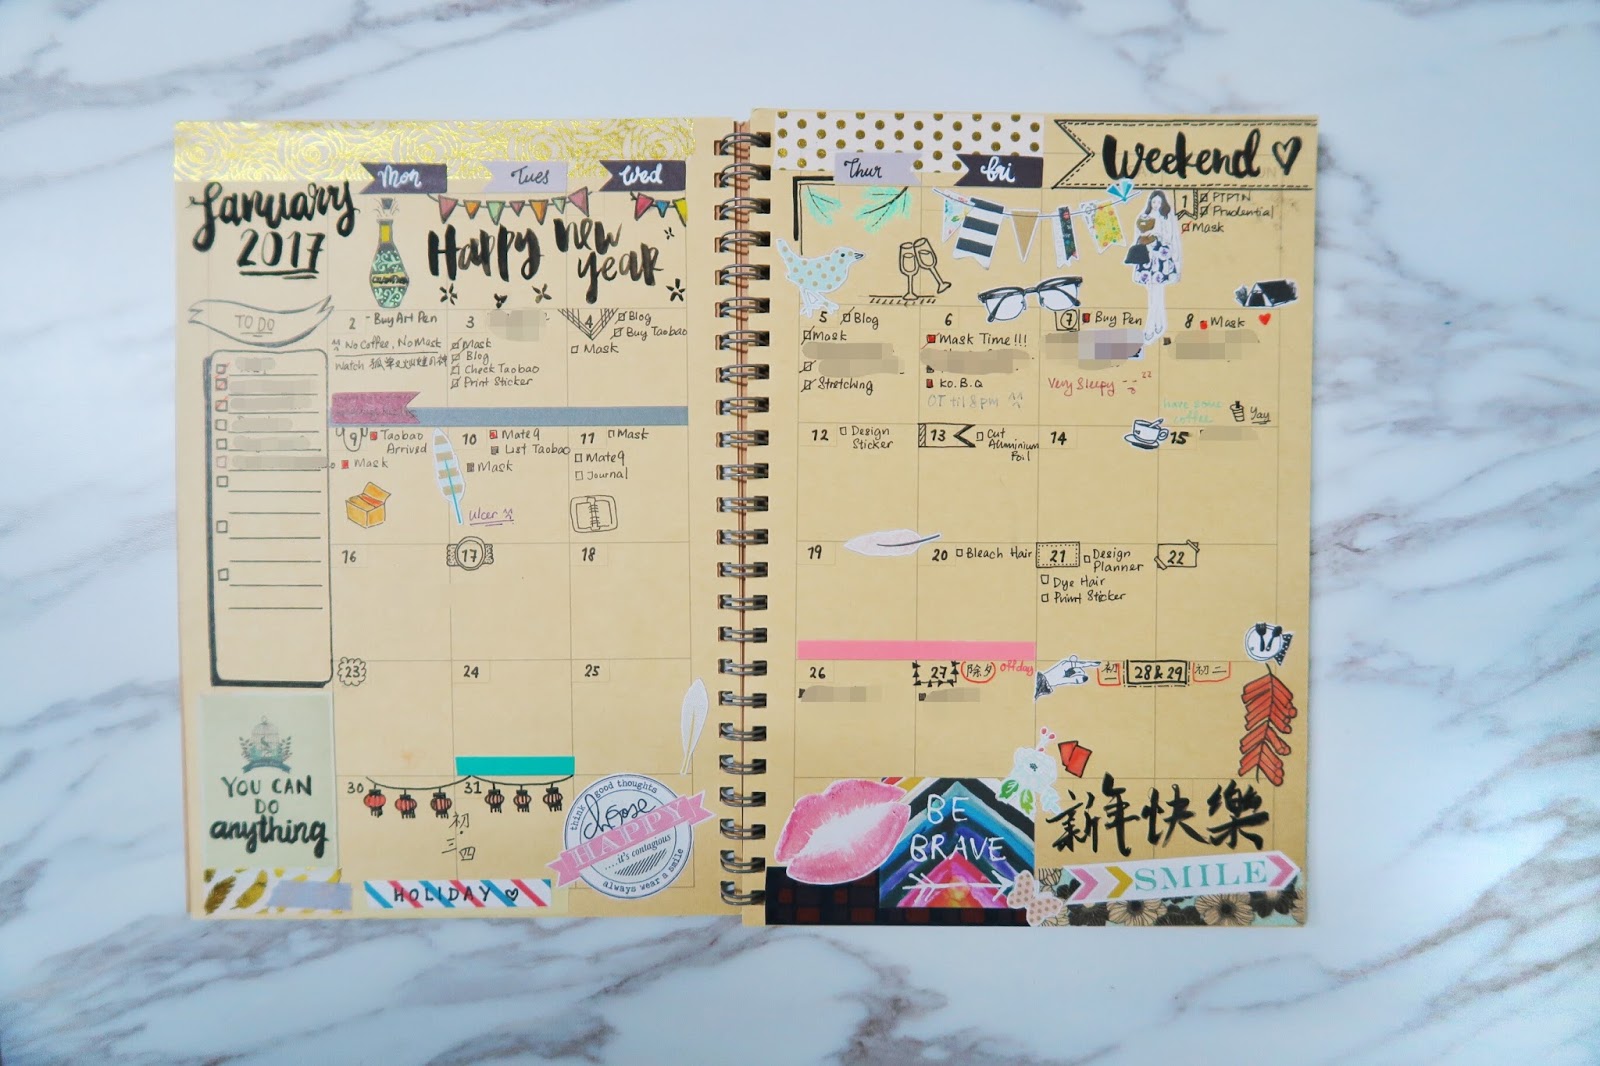 January
2017
Mon
Tues
Wed
Happy new year
TO DO
2 - Buy Art Pen
No Coffee, No Mask
Watch
3
Mask
Blog
Check Taobao
Print Sticker
4
Blog
Buy Taobao
Mask
9 Taobao
Arrived
Mask
10 Mate9
List Taobao
Mask
Ulcer
11 Mask
Mate9
Journal
16
17
18
23
24
25
30
31
初
三
四
YOU CAN
DO
anything
HOLIDAY
think good thoughts
choose
HAPPY
....it's contagious
always wear a smile
Thur
Fri
Weekend
1 PTPTN
Prudential
Mask
5 Blog
Mask
Stretching
6
Mask Time!!!
KO. B.Q
OT til 8pm
7 Buy Pen
Very Sleepy
8 Mask
have some
coffee
Yay
12 Design
Sticker
13 Cut
Aluminium
Foil
14
15
19
20 Bleach Hair
21 Design
Planner
Dye Hair
Print Sticker
22
26
27 除夕 off day
初一 28 & 29 初二
BE
BRAVE
新年快樂
SMILE